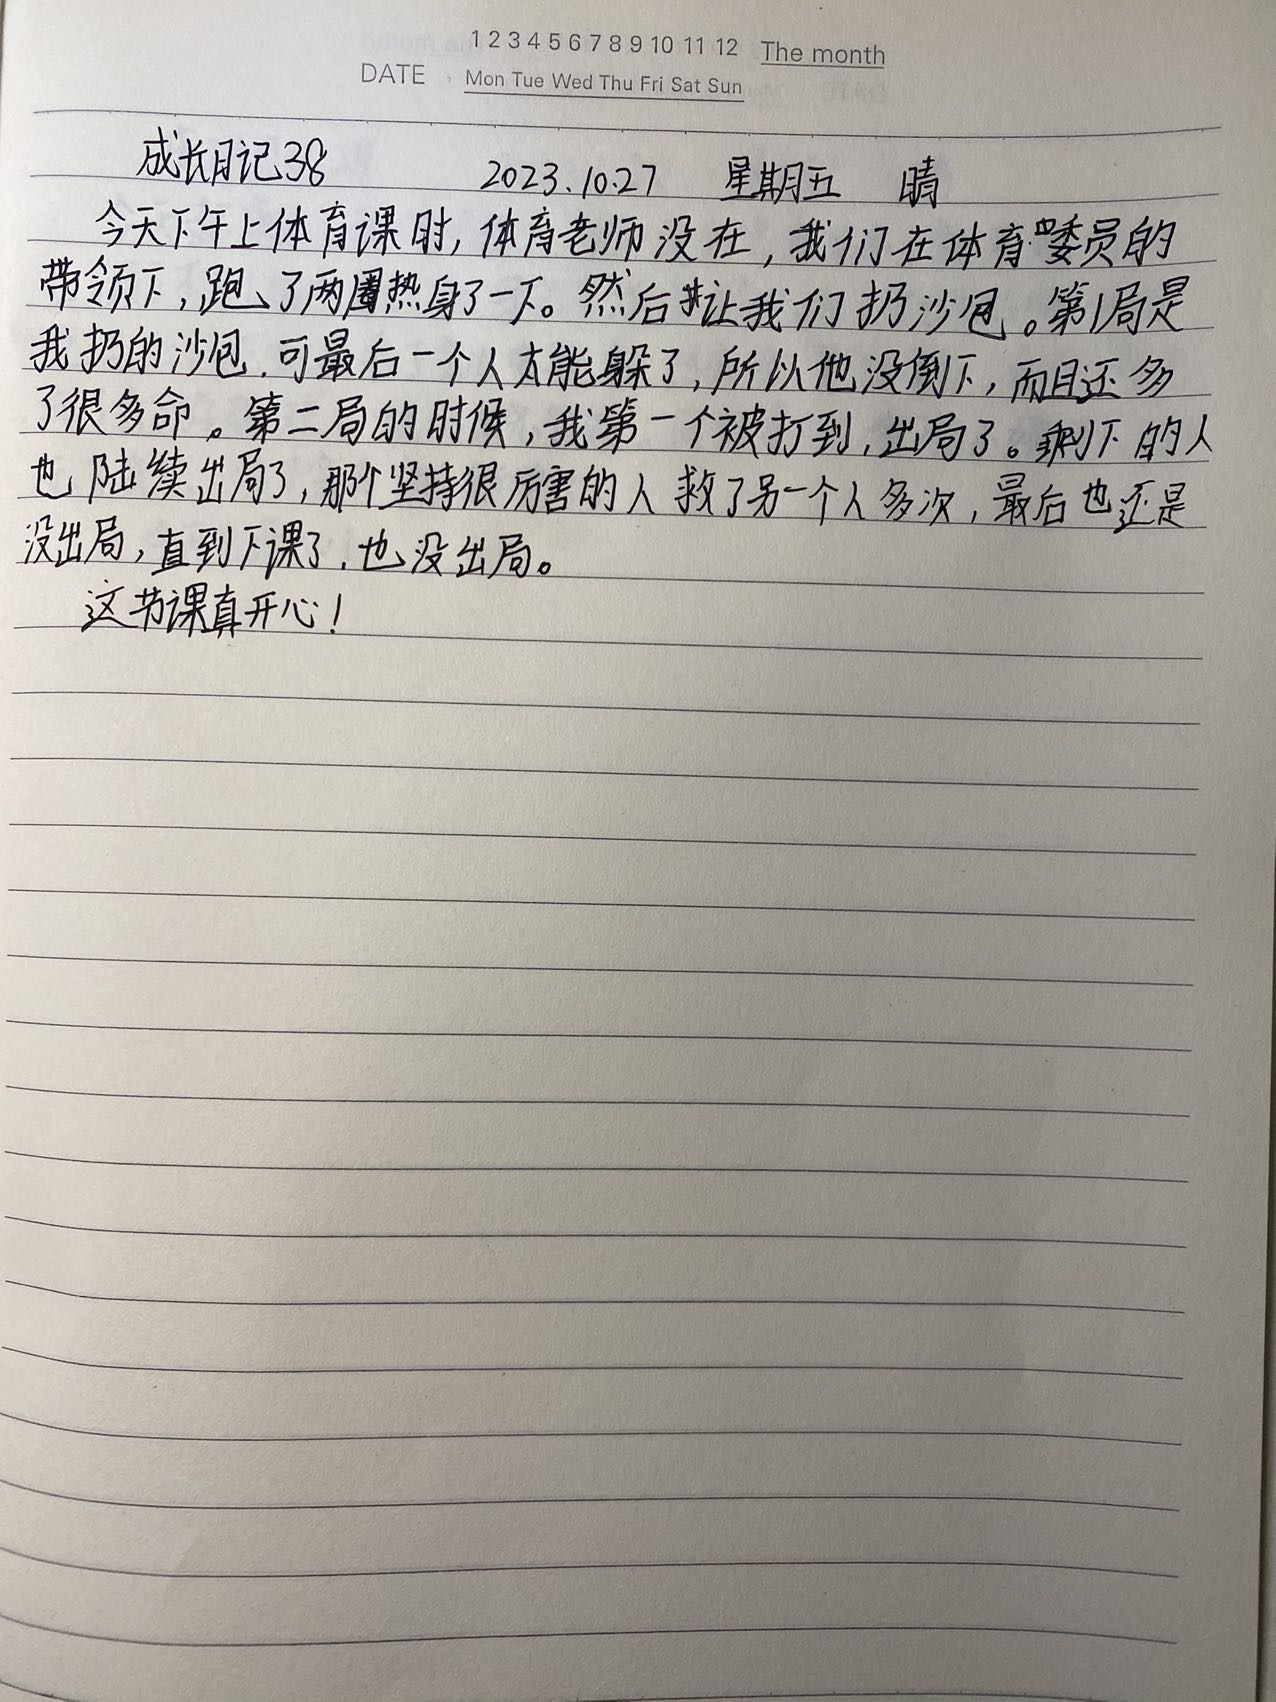 1 2 3 4 5 6 7 8 9 10 11 12 The month
DATE Mon Tue Wed Thu Fri Sat Sun
成长日记38 2023.10.27 星期五 晴
今天下午上体育课时，体育老师没在，我们在体育委员的
带领下，跑了两圈热身了一下。然后让我们扔沙包。第1局是
我扔的沙包，可最后一个人太能躲了，所以他没倒下，而且还多
了很多命。第二局的时候，我第一个被打到，出局了。剩下的人
也陆续出局了，那个坚持很厉害的人救了另一个人多次，最后也还是
没出局，直到下课了，也没出局。
这节课真开心！